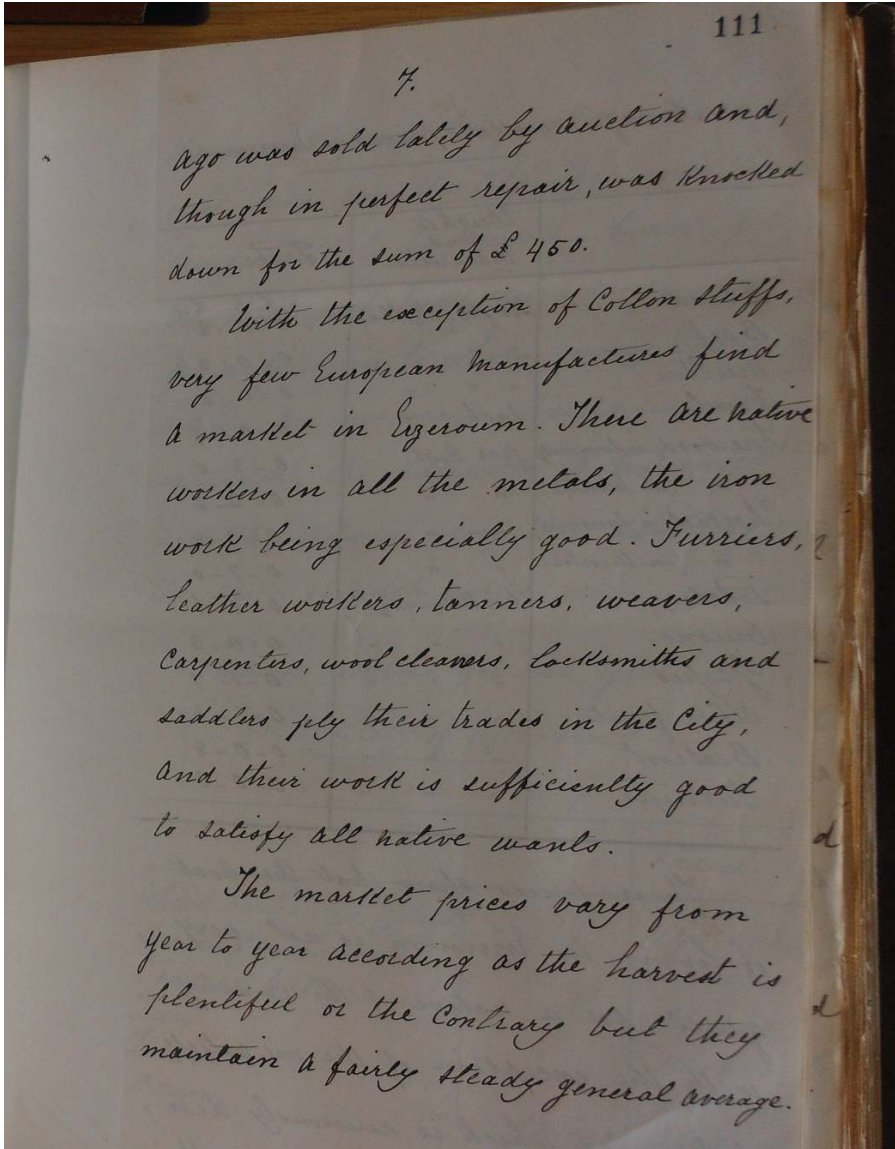 111
7.
ago was sold lately by auction and,
though in perfect repair, was knocked
down for the sum of £ 450.
With the exception of Cotton stuffs,
very few European manufactures find
a market in Erzeroum. There are native
workers in all the metals, the iron
work being especially good. Furriers,
leather workers, tanners, weavers,
carpenters, wool cleaners, locksmiths and
saddlers ply their trades in the City,
and their work is sufficiently good
to satisfy all native wants.
The market prices vary from
year to year according as the harvest is
plentiful or the contrary but they
maintain a fairly steady general average.